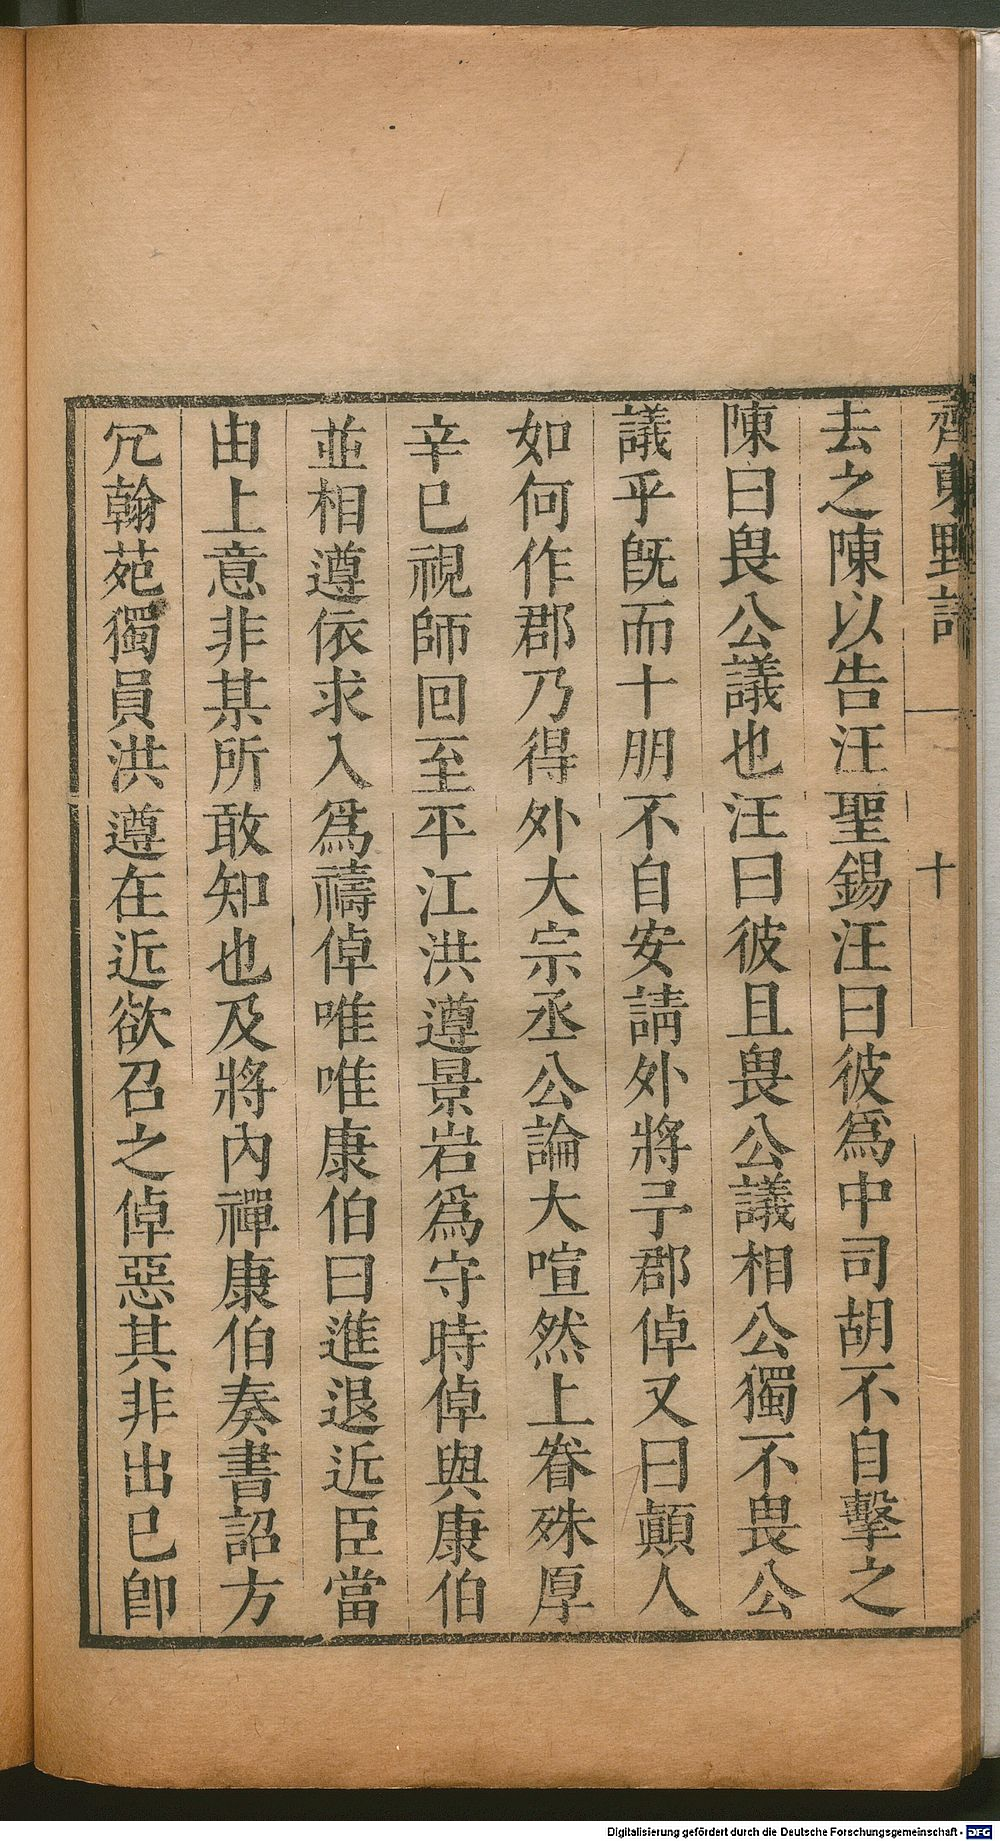 齊東野語
十
去之陳以告汪聖錫汪曰彼爲中司胡不自擊之
陳曰畏公議也汪曰彼且畏公議相公獨不畏公
議乎旣而十朋不自安請外將予郡倬又曰顛人
如何作郡乃得外大宗丞公論大喧然上眷殊厚
辛巳視師回至平江洪遵景岩爲守時倬與康伯
並相遵依求入爲禱倬唯唯康伯曰進退近臣當
由上意非某所敢知也及將內禪康伯奏書詔方
冗翰苑獨員洪遵在近欲召之倬惡其非出已卽
Digitalisierung gefördert durch die Deutsche Forschungsgemeinschaft - DFG